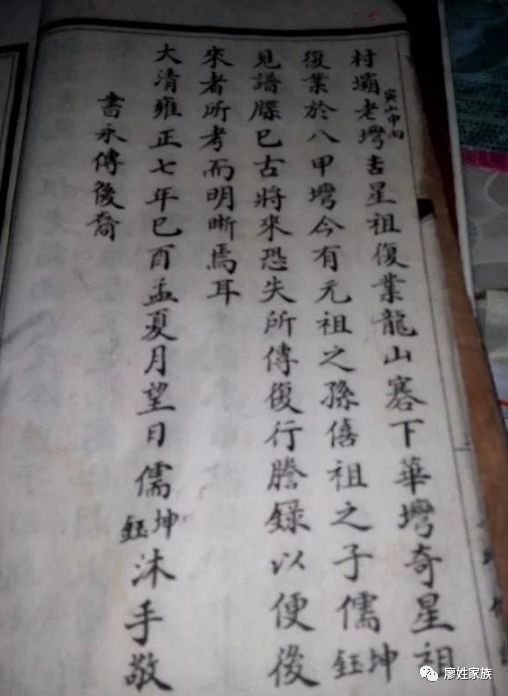 村壩老塆寅山申向吉星祖復業龍山寨下華塆奇星祖
復業於八甲塆今有元祖之孫僖祖之子儒坤鈺
見譜牒已古將來恐失所傳復行謄錄以便後
來者所考而明晰焉耳
大清雍正七年己酉孟夏月望日儒坤鈺沐手敬
書永傳後裔
廖姓家族